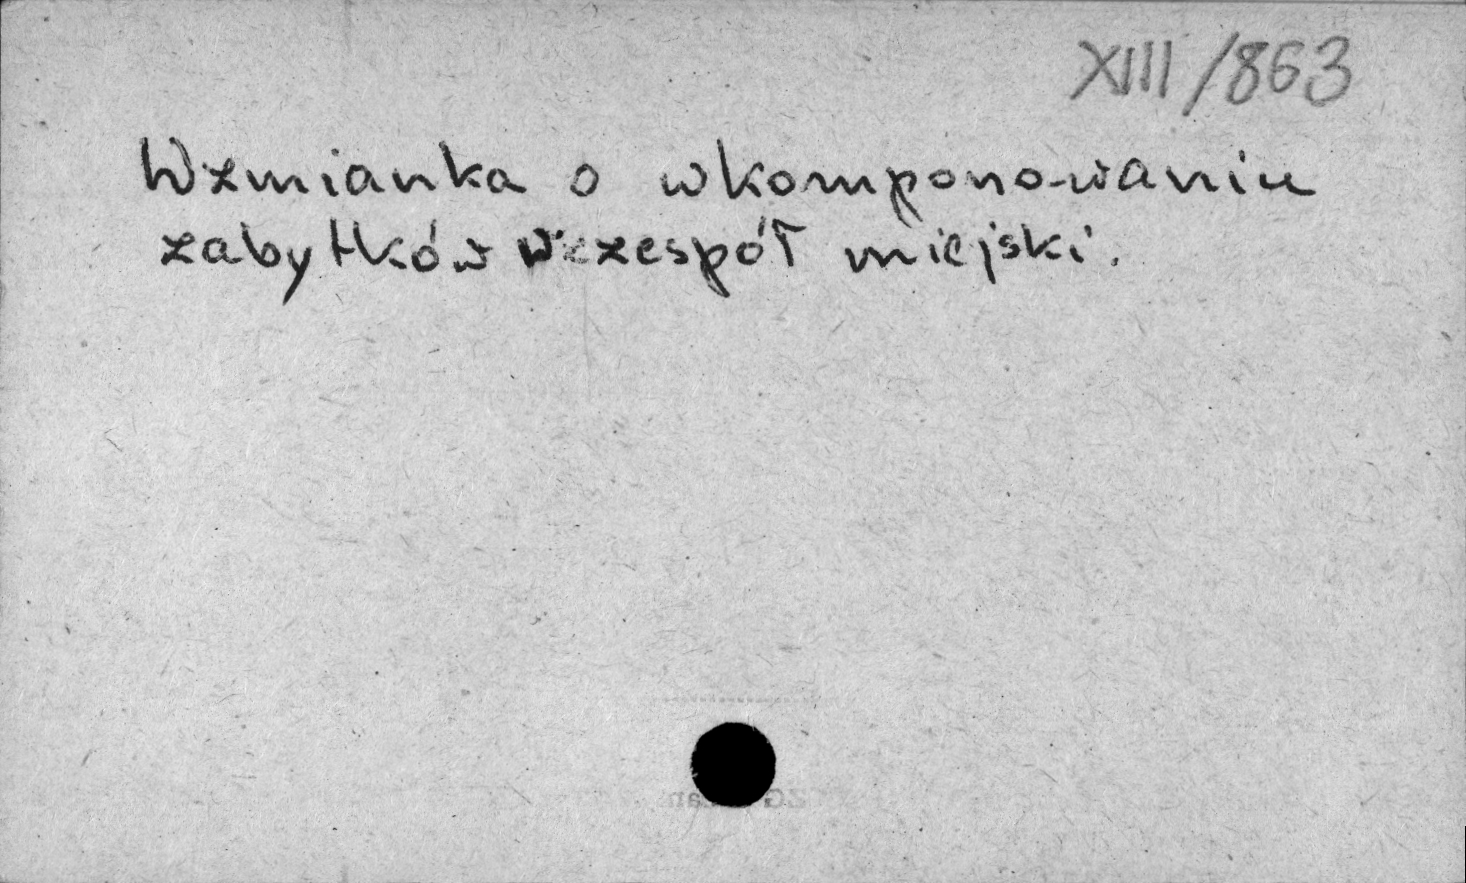 XIII/863
Wzmianka o wkomponowaniu
zabytków w zespół miejski.